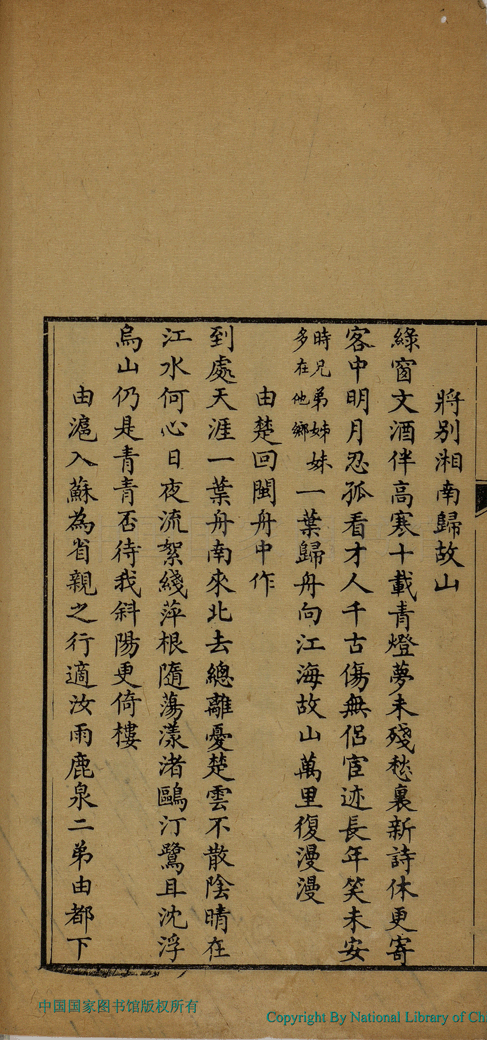 將別湘南歸故山
綠窗文酒伴高寒十載青燈夢未殘愁裏新詩休更寄
客中明月忍孤看才人千古傷無侶宦迹長年笑未安
時兄弟姊妹
多在他鄉
一葉歸舟向江海故山萬里復漫漫
由楚回閩舟中作
到處天涯一葉舟南來北去總離憂楚雲不散陰晴在
江水何心日夜流絮綫萍根隨蕩漾渚鷗汀鷺且沈浮
烏山仍是青青否待我斜陽更倚樓
由滬入蘇為省親之行適汝雨鹿泉二弟由都下
中国国家图书馆版权所有
Copyright By National Library of Ch